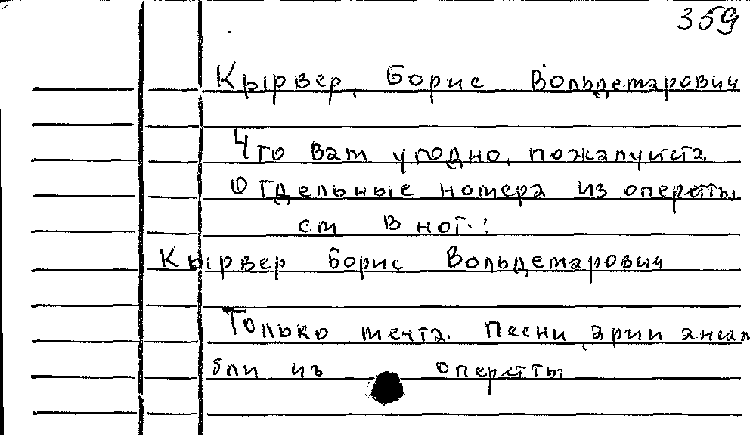 359
Кырвер, Борис Вольдемарович
Что вам угодно, пожалуйста
Отдельные номера из оперетты
см в нот.:
Кырвер Борис Вольдемарович
Только мечта. Песни, арии ансам
бли из оперетты